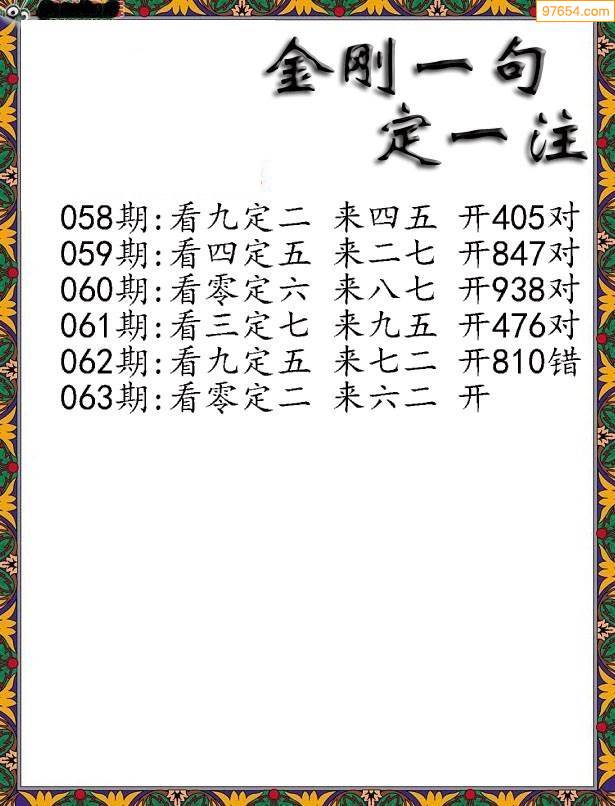 97654.com
金刚一句
定一注
058期:看九定二 来四五 开405对
059期:看四定五 来二七 开847对
060期:看零定六 来八七 开938对
061期:看三定七 来九五 开476对
062期:看九定五 来七二 开810错
063期:看零定二 来六二 开